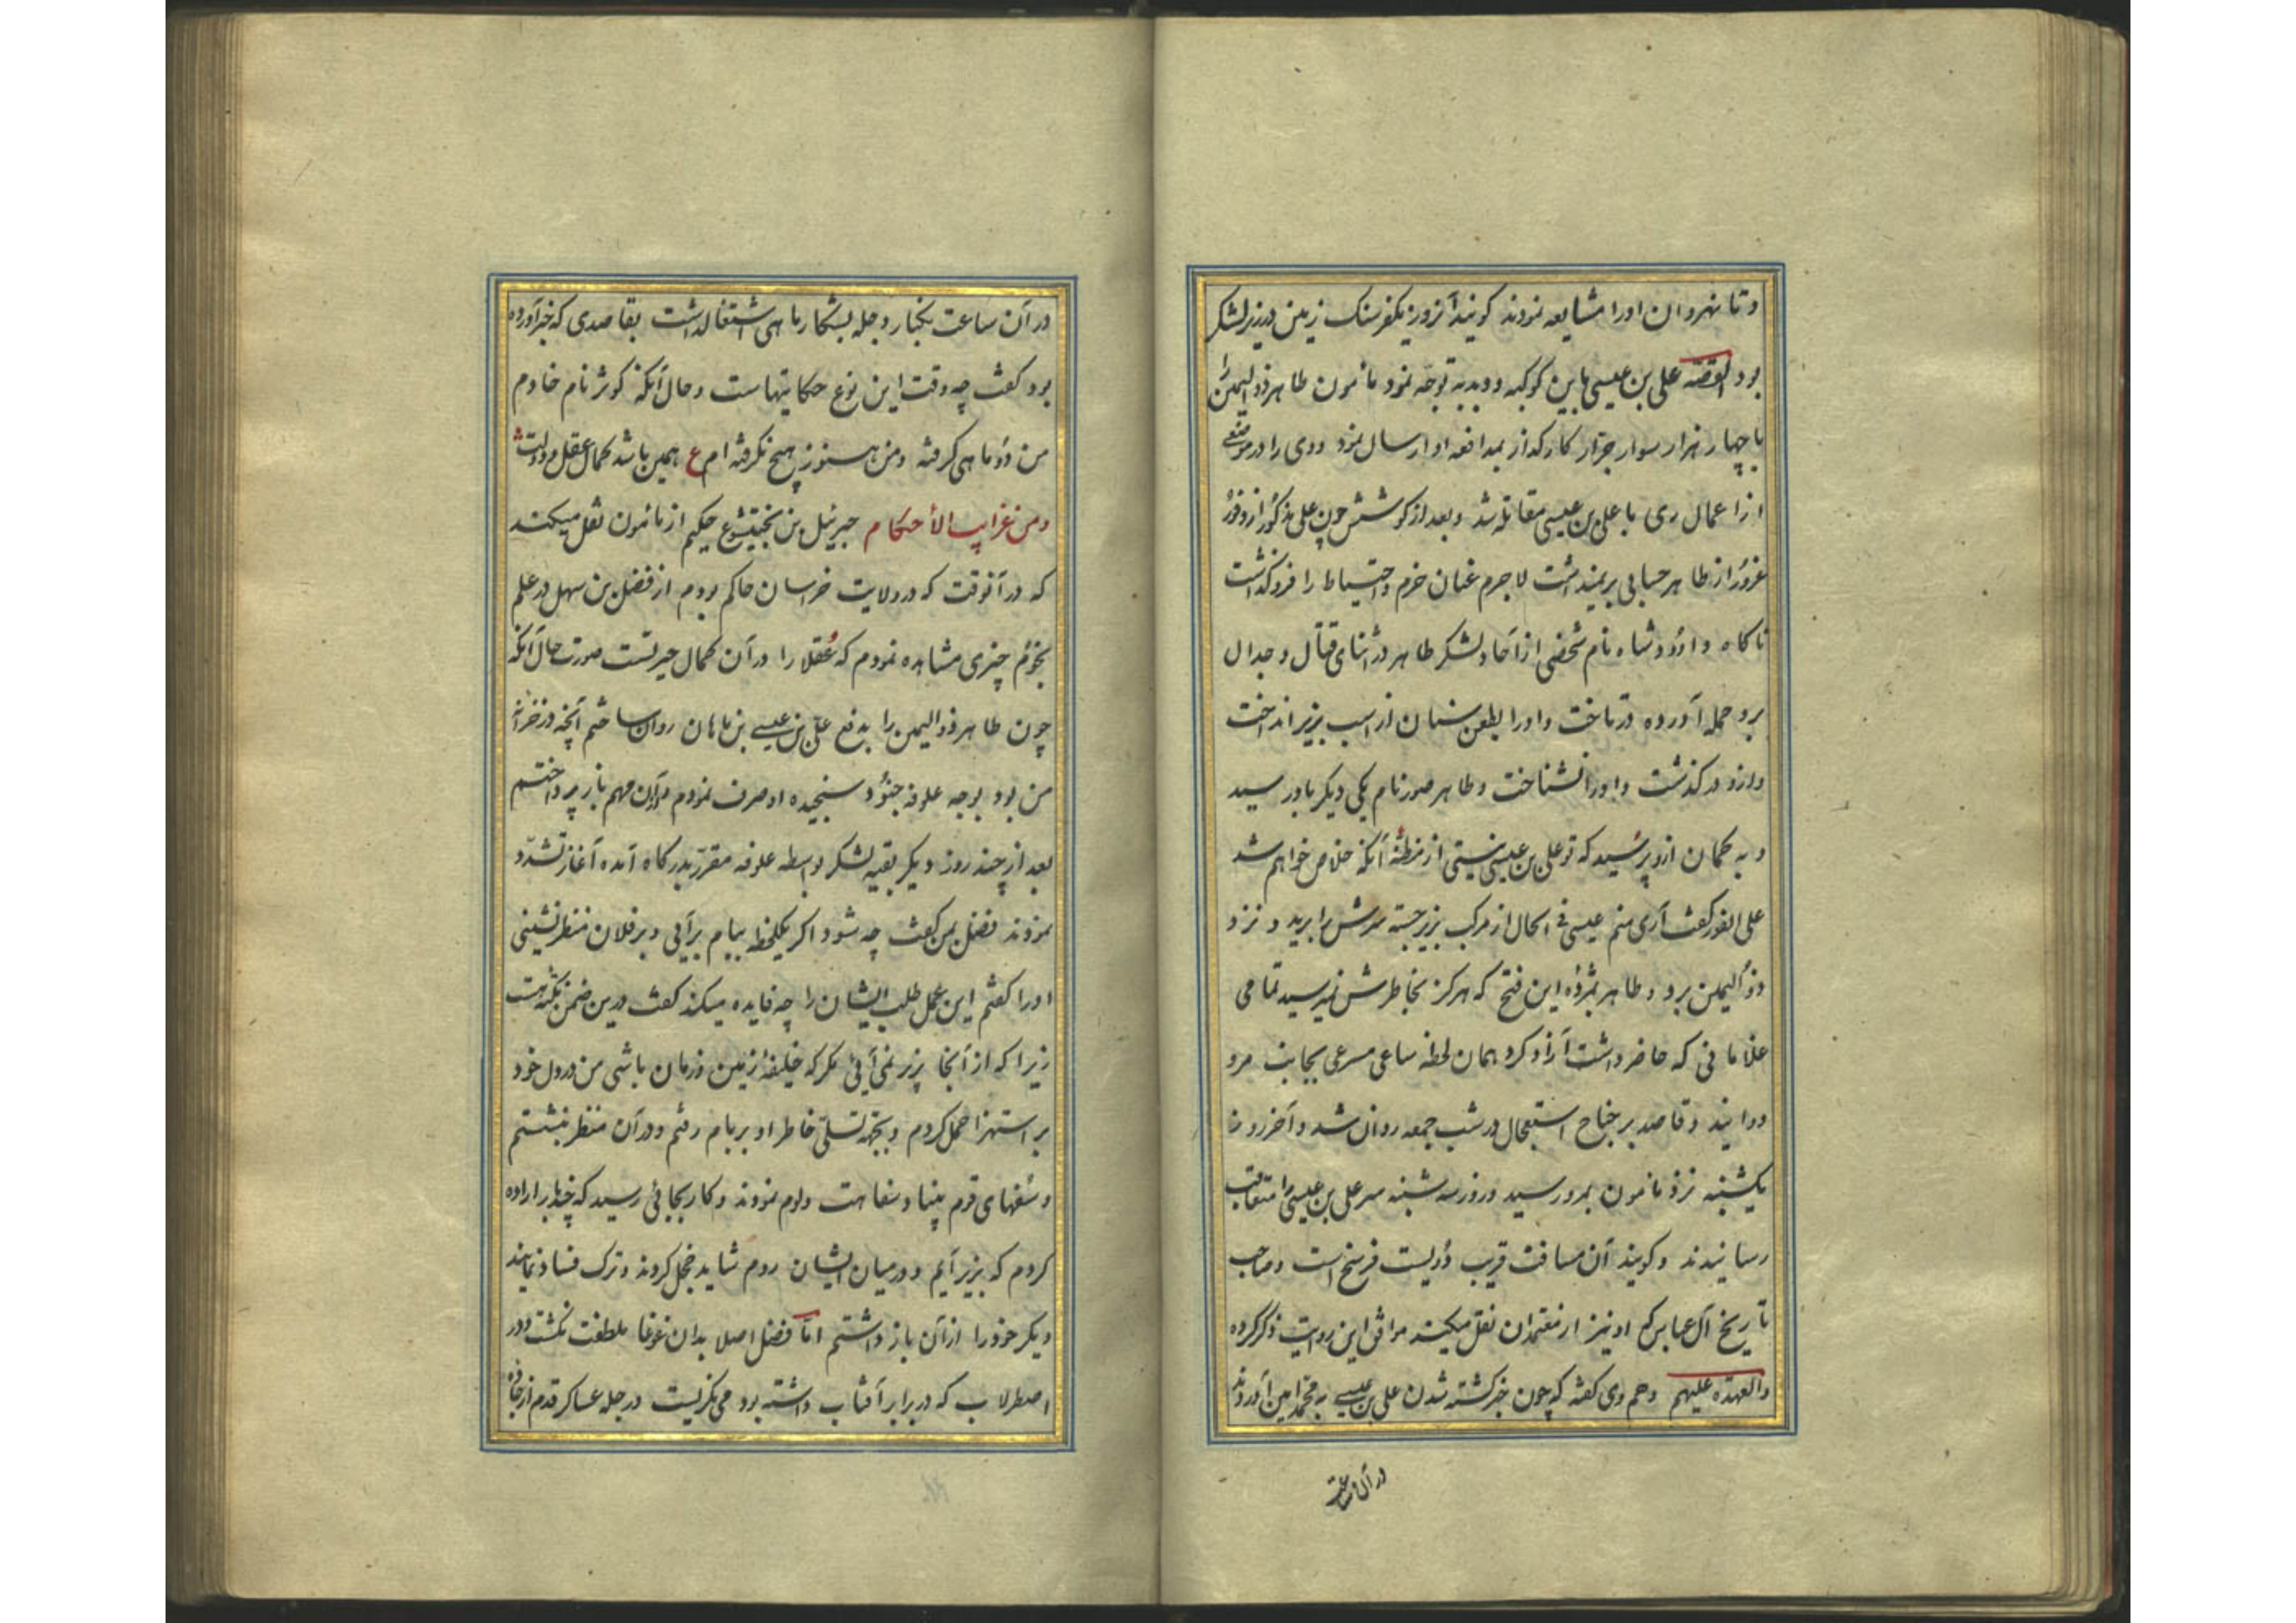 و تا نهروان اورا مشایعه نمودند کویند آنروز یکفرسنک زمین در زیر لشکر
بود القصه علی بن عیسی باین کوکبه و دبدبه توجه نمود مأمون طاهر ذو الیمین را
با چهار هزار سوار جرار کارکذار بمدافعه او ارسال نمود و وی را در موضعی
از اعمال ری با علی بن عیسی مقاتله شد و بعد از کوشش چون علی مذکور از وفور
غرور از طاهر حسابی بر نمیداشت لاجرم عنان حزم و احتیاط را فرو کذاشت
ناکاه داوود شاه نام شخصی از آحاد لشکر طاهر در اثنای قتال و جدال
برو حمله آورده درتاخت و اورا بطعن سنان از اسب بزیر انداخت
و ازو در کذشت و اورا نشناخت و طاهر صور نام یکی دیکر باو رسید
و به کمان ازو پرسید که تو علی بن عیسی نیستی از مظنه آنکه خلاص خواهم شد
علی الفور کفت آری منم عیسی فی الحال از مرکب بزیر جسته سرش را برید و نزد
ذو الیمین برد و طاهر بمژده این فتح که هرکز بخاطرش نمیرسید تمامی
غلامانی که حاضر داشت آزاد کرد و همان لحظه ساعی مسرعی بجانب مرو
دوانید و قاصد بر جناح استعجال در شب جمعه روان شد و آخر روز
یکشنبه نزد مأمون بمرو رسید و روز سه شنبه سر علی بن عیسی را متعاقب
رسانیدند و کویند آن مسافت قریب دویست فرسخ است و صاحب
تاریخ آل عباس که او نیز از معتمدان نقل میکند موافق این روایت ذکر کرده
والعهده علیهم و هم وی کفته که چون خبر کشته شدن علی بن عیسی به محمد امین آوردند
در آن ساعت
در آن ساعت بکنار دجله بشکار ماهی اشتغال داشت بقاصدی که خبر آورده
بود کفت چه وقت این نوع حکایتهاست و حال آنکه کوثر نام خادم
من دو ماهی کرفته و من هنوز هیچ نکرفته ام ع همین باشد کمال عقل و دولت
ومن غرایب الأحکام جبرئیل بن بختیشوع حکیم از مأمون نقل میکند
که در آنوقت که در ولایت خراسان حاکم بودم از فضل بن سهل در علم
نجوم چیزی مشاهده نمودم که عقلا را در آن کمال حیرتست صورت حال آنکه
چون طاهر ذو الیمین را بدفع علی بن عیسی بن ماهان روان ساختم آنچه در خزانه
من بود بوجه علوفه جنود سنجیده او صرف نمودم و از آن مهم باز پرداختم
بعد از چند روز دیکر بقیه لشکر بواسطه علوفه مقرر بدرکاه آمده آغاز تشدد
نمودند فضل بمن کفت چه شود اکر یکلحظه ببام برآیی و بر فلان منظر نشینی
اورا کفتم این عمل طلب ایشان را چه فایده میکند کفت درین ضمن نکته ایست
زیرا که از آنجا بزیر نمی آیی مکر که خلیفهٔ زمین و زمان باشی من در دل خود
بر استهزا حمل کردم و بجهه تسلی خاطر او بر بام رفتم و در آن منظر بنشستم
و سفهای قوم بنیاد سفاهت و لوم نمودند و کار بجائی رسید که چند بار اراده
کردم که بزیر آیم و در میان ایشان روم شاید خجل کردند و ترک فساد نمایند
دیکر خود را از آن باز داشتم اما فضل اصلا بدان غوغا ملتفت نکشت و در
اصطرلاب که در برابر آفتاب داشته بود می نکریست در جمله عساکر قدم از جاده